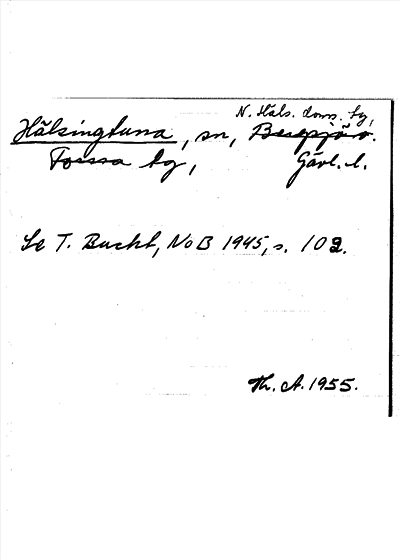 N. Häls. doms. tg,
Hälsingtuna, sn, Bergsjö o.
Forssa tg, Gävl. l.
Se T. Bucht, NoB 1945, s. 102.
Th. A. 1955.